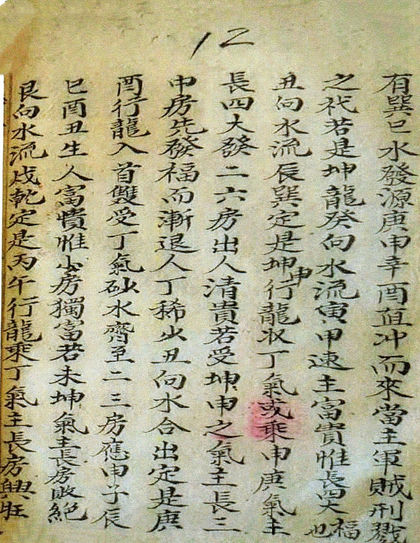 12
有巽巳水發源庚申辛酉直冲而來當主軍賊刑戮
之代若是坤龍癸向水流寅甲速主富貴惟長四大福也
丑向水流辰巽定是坤申行龍収丁氣或乘申庚氣主
長四大發二六房出人清貴若受坤申之氣主長三
申房先發福而漸退人丁稀少丑向水合出定是庚
酉行龍入首雙受丁氣砂水齊至二三房應申子辰
巳酉丑生人富貴惟少房獨富若未坤氣主長房敗絕
艮向水流戌乾定是丙午行龍乘丁氣主長房興旺